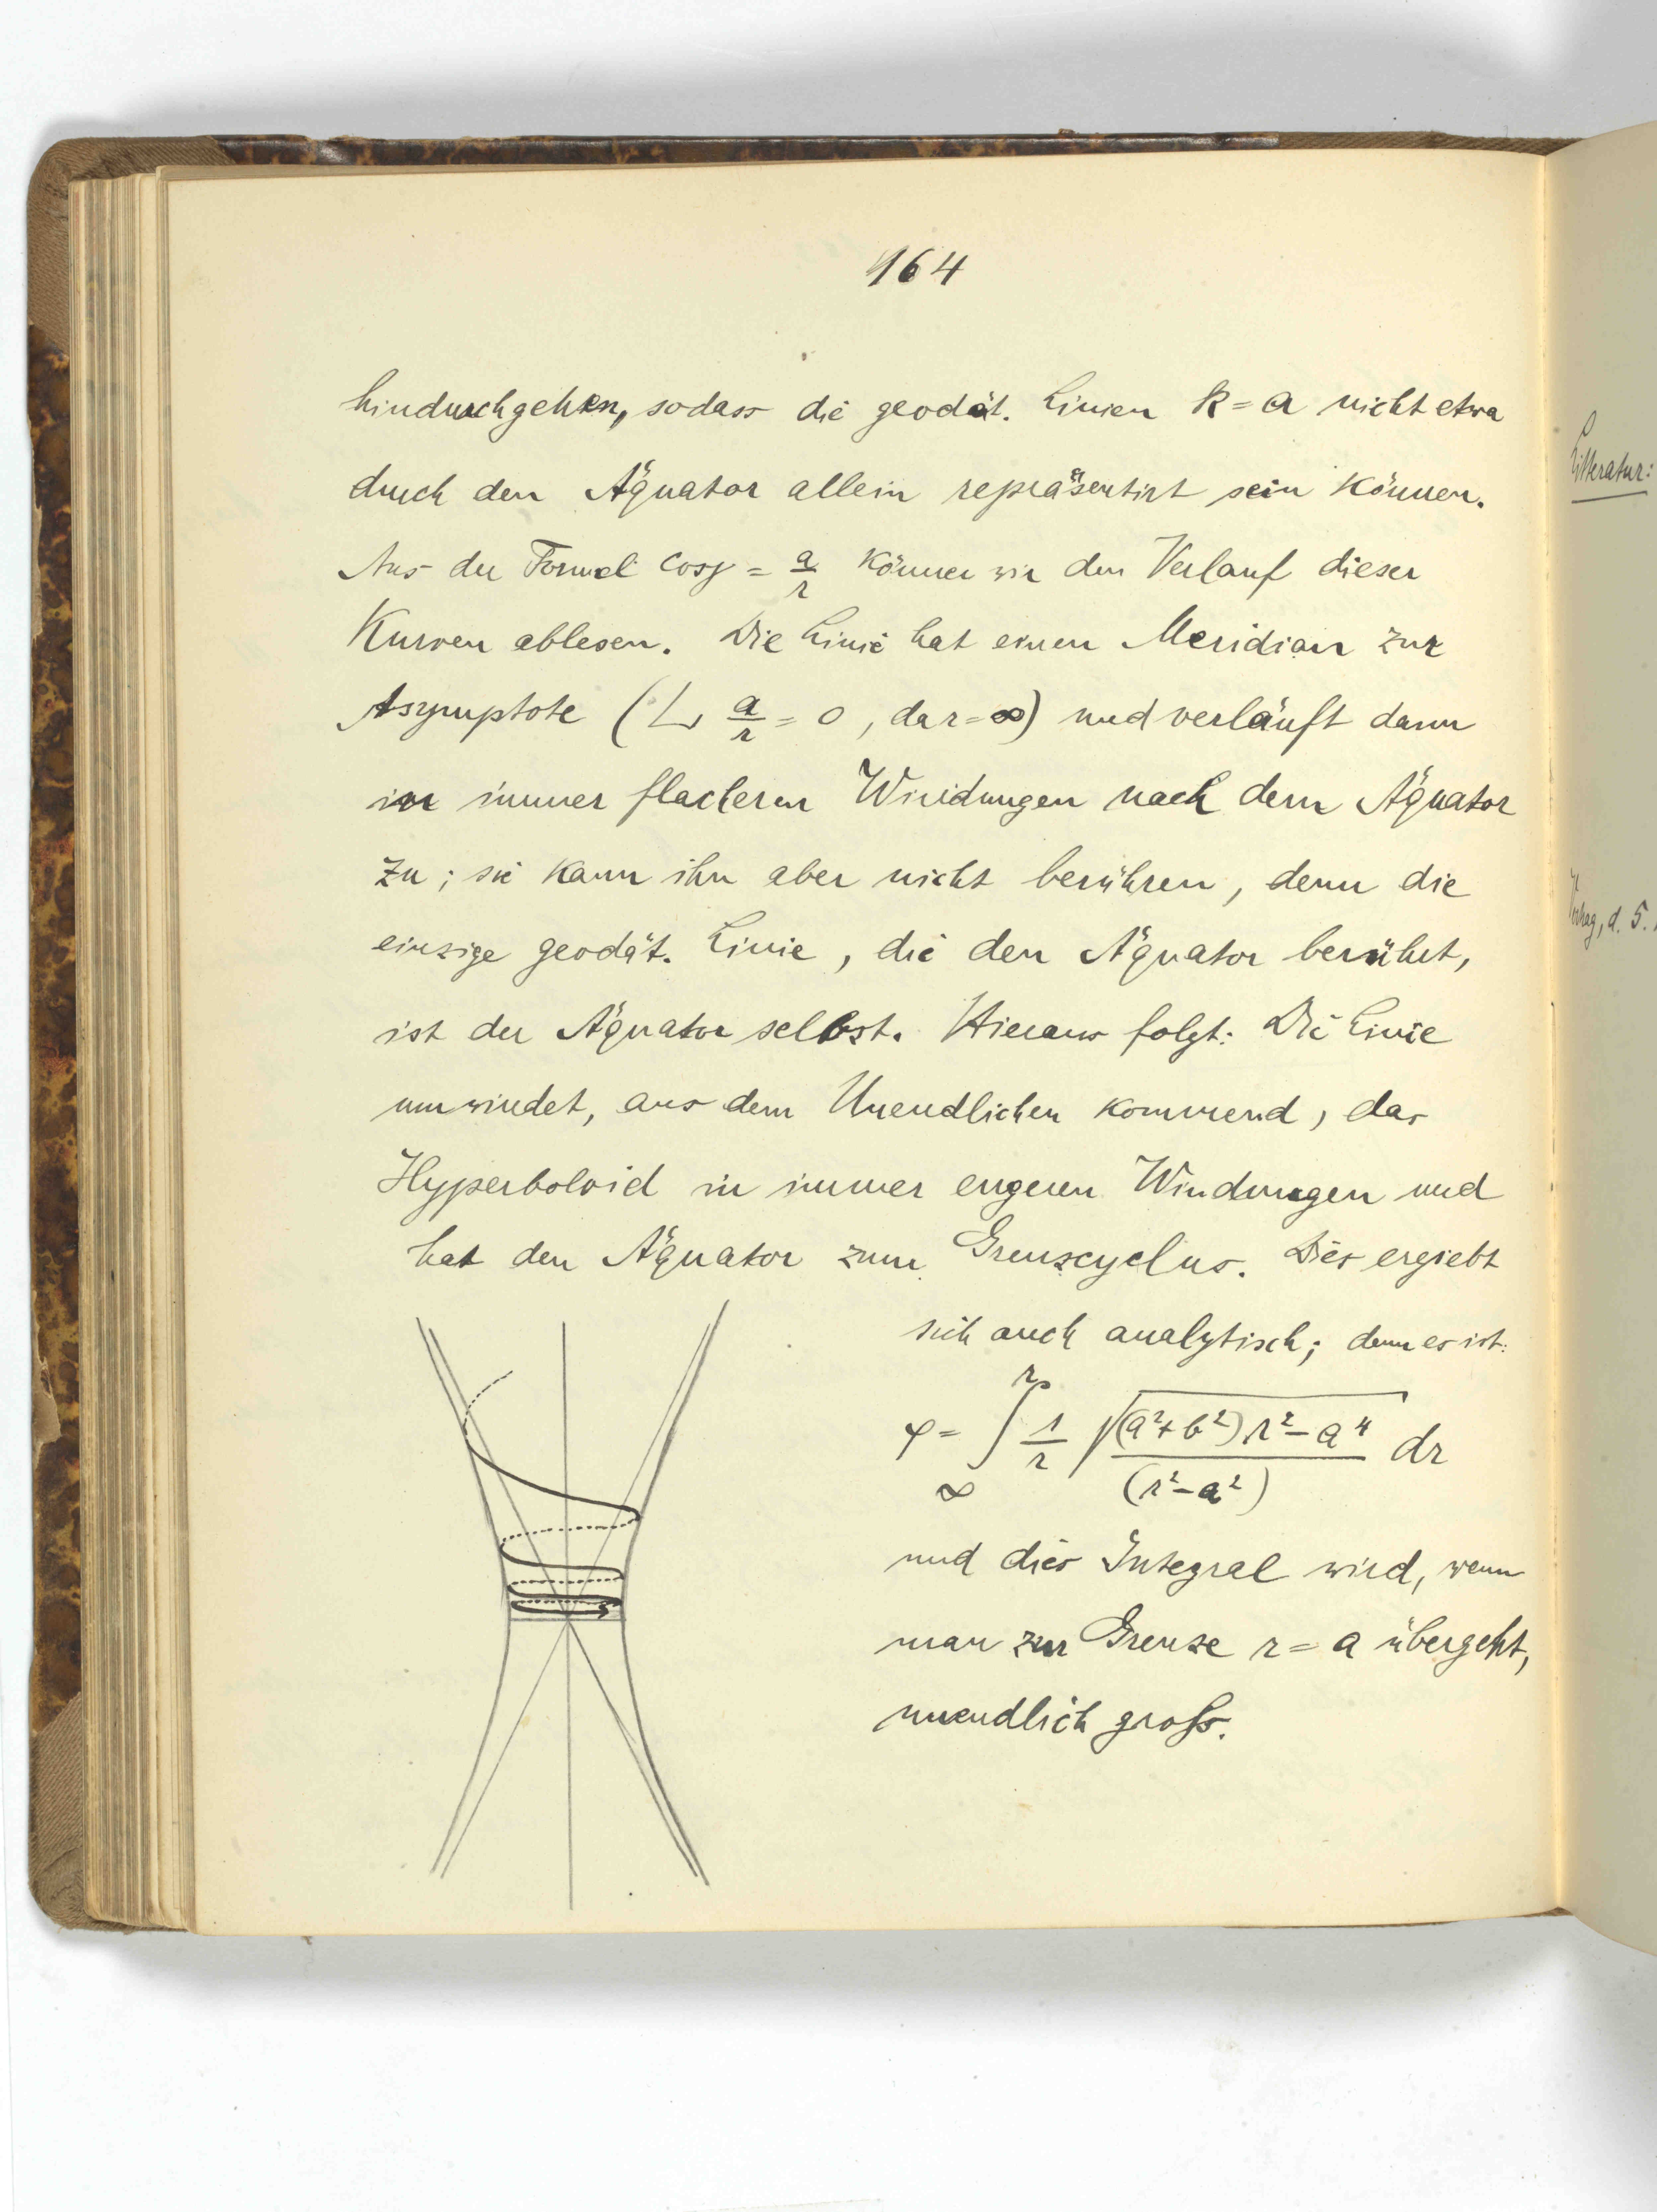 164
hindurchgehen, sodass die geodät. Linien k = a nicht etwa
durch den Äquator allein repräsentirt sein können.
Aus der Formel cos γ = a/r können wir den Verlauf dieser
Kurven ablesen. Die Linie hat einen Meridian zur
Asymptote (L a/r = 0, da r = ∞) und verläuft dann
in immer flacheren Windungen nach dem Äquator
zu; sie kann ihn aber nicht berühren, denn die
einzige geodät. Linie, die den Äquator berührt,
ist der Äquator selbst. Hieraus folgt: Die Linie
umwindet, aus dem Unendlichen kommend, das
Hyperboloid in immer engeren Windungen und
hat den Äquator zum Grenzcyclus. Dies ergiebt
sich auch analytisch; denn es ist:
φ = ∫_∞^r 1/r √((a²+b²)r² – a⁴) / (r² – a²) dr
und dies Integral wird, wenn
man zur Grenze r = a übergeht,
unendlich groß.
Litteratur:
d. 5.